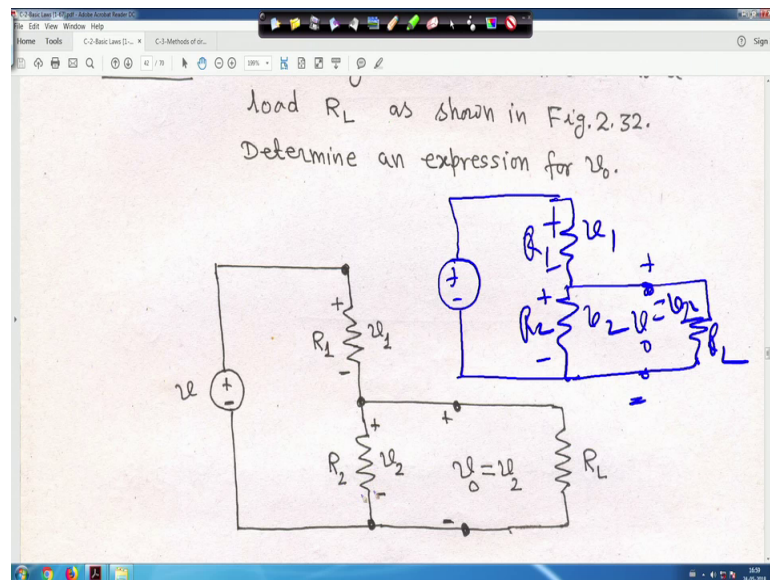 C-2-Basic Laws [1-67].pdf - Adobe Acrobat Reader DC
File Edit View Window Help
Home Tools C-2-Basic Laws [1-... × C-3-Methods of cir...
Sign
42 / 70
load R_L as shown in Fig. 2.32.
Determine an expression for v_0.
+ R_1 v_1 -
+ -
+ R_2 v_2 -
+ v_0 = v_2
R_L
+ R_1 v_1 -
v + -
+ R_2 v_2 -
+ v_0 = v_2 -
R_L
16:59